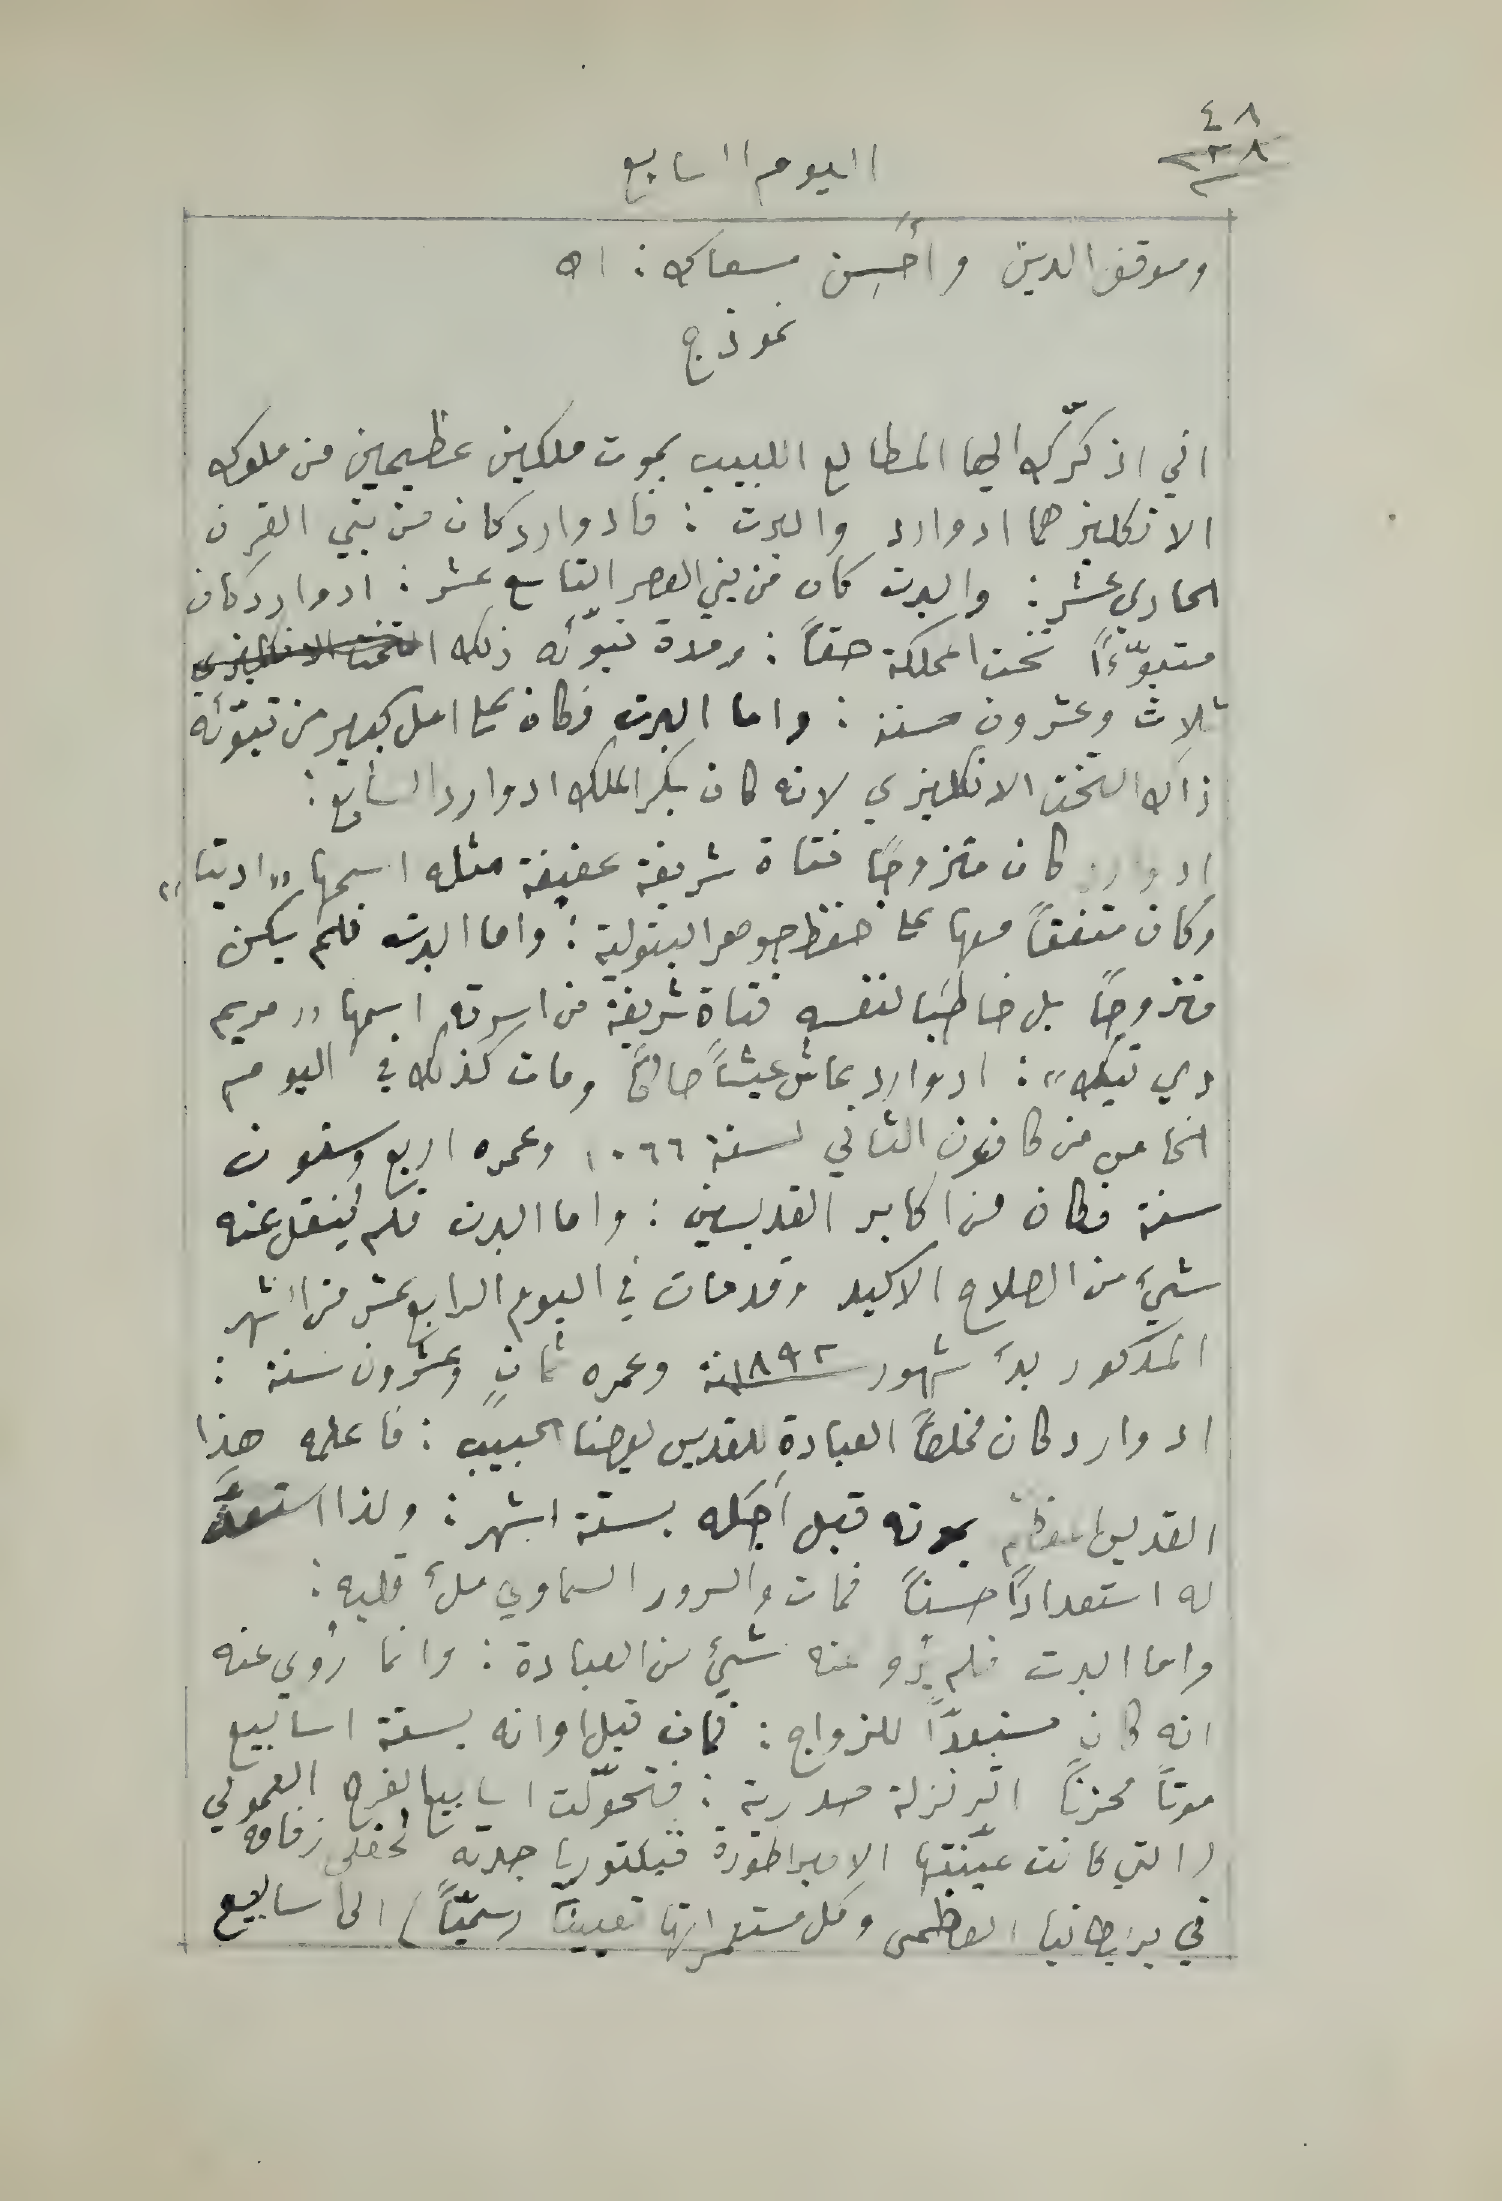 ٤٨
اليوم السابع
وموقف الدين وأحسِن مسعاك : اه
نموذج
اني اذكّرك ايها المطالع اللبيب بموت ملكين عظيمين من ملوك
الانكليز هما ادوارد والبرت : فادوارد كان من بني القرن
الحادي عشر : والبرت كان من بني العصر التاسع عشر : ادوارد كان
متبوّءًا تخت المملكة حقاً : ومدة تبوّئه ذلك التخت الانكليزي
ثلاث وعشرون سنة : واما البرت فكان على امل كبير من تبوّئه
ذاك التخت الانكليزي لانه كان بكر الملك ادوارد السابع :
ادوارد كان متزوجًا فتاة شريفة عفيفة مثله اسمها „اديتا„
وكان متفقاً معها على حفظ جوهر البتولية : واما البرت فلم يكن
متزوجًا بل خاطبًا لنفسه فتاة شريفة من اسرته اسمها „مريم
دي تيك„ : ادوارد عاش عيشاً صالحًا ومات كذلك في اليوم
الخامس من كانون الثاني لسنة ١٠٦٦ وعمره اربع وستون
سنة فكان من اكابر القديسين : واما البرت فلم يُنقل عنه
شيءٌ من الصلاح الاكيد وقد مات في اليوم الرابع عشر من الشهر
المذكور بدءَ شهور سنة ١٨٩٢ وعمره ثمانٍ وعشرون سنة :
ادوارد كان مخلصًا العبادة للقديس يوحنا الحبيب : فاعلمه هذا
القديس المعظم بموته قبل أجَله بستة اشهر : ولذا استعدَّ
له استعدادًا حسناً فمات والسرور السماوي ملءُ قلبه :
واما البرت فلم يُروَ عنه شيءٌ من العبادة : وانما رُوي عنه
انه كان مستعدًّا للزواج : فمات قبل اوانه بستة اسابيع
موتاً محزناً اثر نزلة صدرية : فتحوّلت اسابيع الفرح العمومي
(التي كانت عيّنتها الامبراطورة فيكتوريا جدته لحفلى زفافه
في بريطانيا العظمى وكل مستعمراتها تعييناً رسميّاً) الى اسابيع